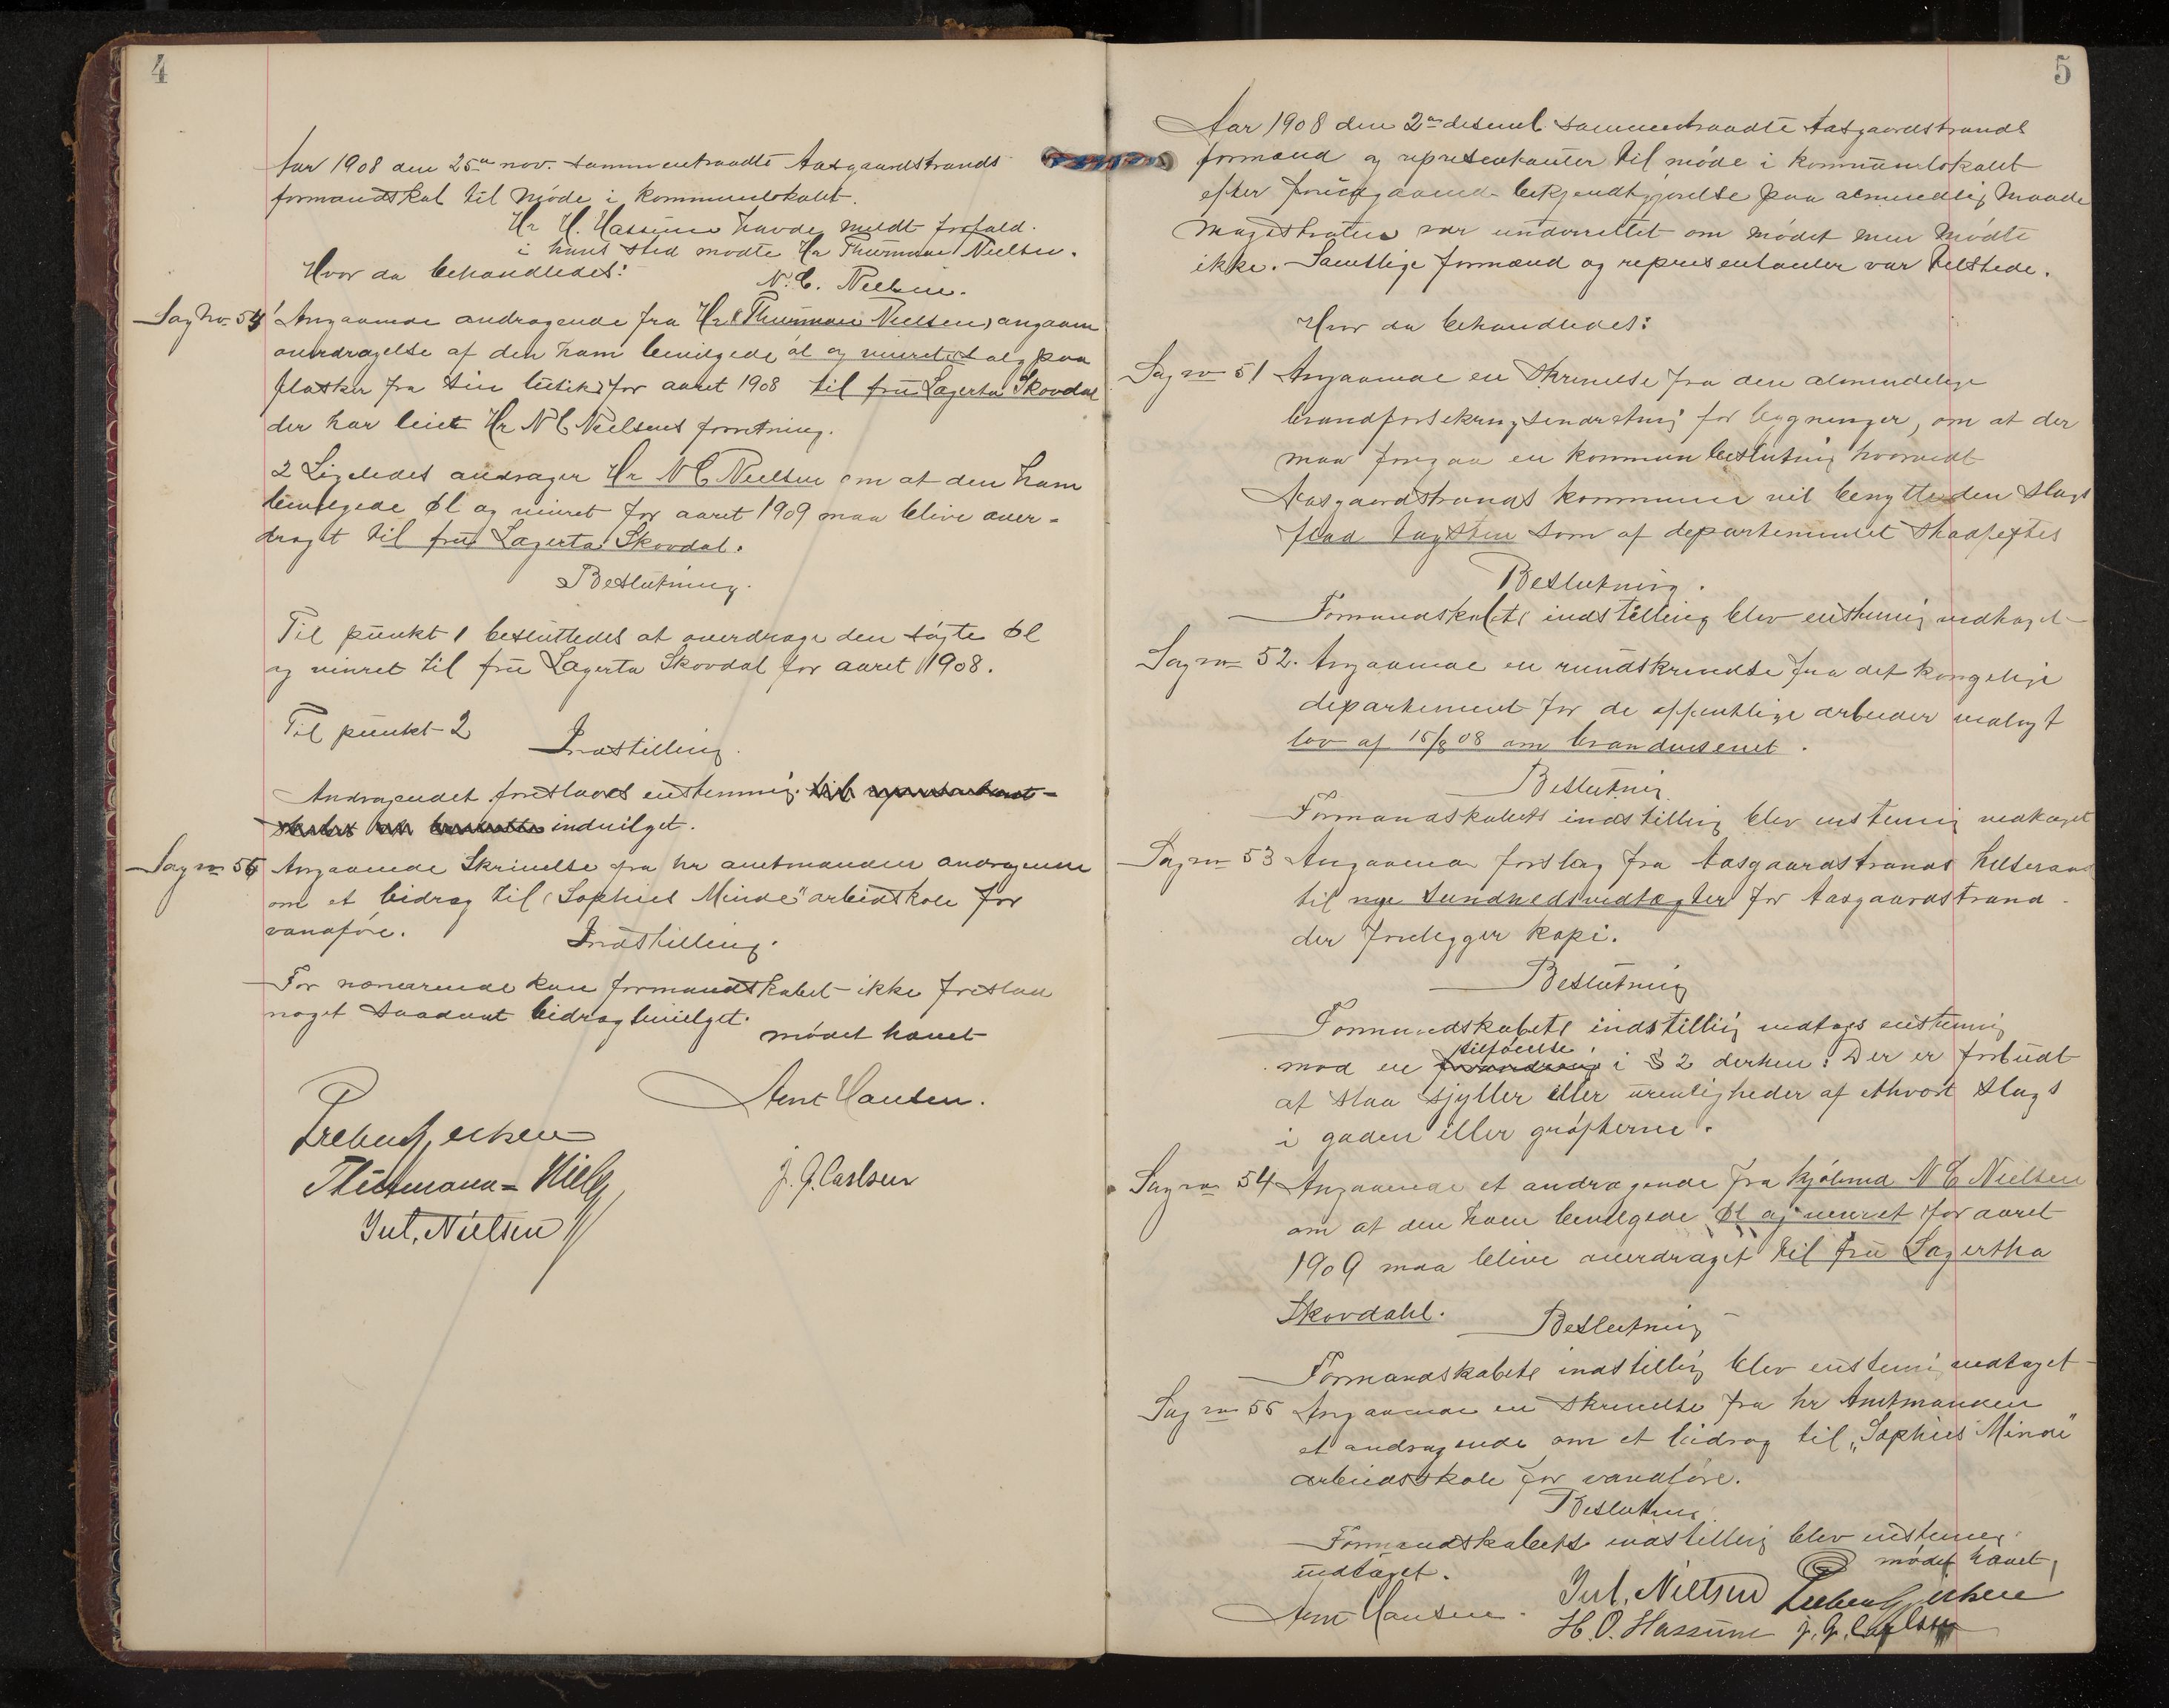 4
Aar 1908 den 25de nov. sammentraadte Aasgaardstrands
formandskab til møde i kommunelokalet.
Hr H. Hassum havde meldt forfald.
i hans sted mødte Hr Thurmann Nielsen.
Hvor da behandledes:
N. C. Nielsen.
Sag No 54 1 Angaaende andragende fra Hr (Thurmann Nielsen) angaaen
overdragelse af den ham bevilgede øl og vinret salg paa
flasker fra sin butik for aaret 1908 til fru Lagerta Skovdal
der har leiet Hr N C Nielsens forretning.
2 Ligeledes andrager Hr N C Nielsen om at den ham
bevilgede øl og vinret for aaret 1909 maa blive over-
draget til fru Lagerta Skovdal.
Beslutning.
Til punkt 1 besluttedes at overdrage den søgte øl
og vinret til fru Lagerta Skovdal for aaret 1908.
Til punkt 2
Indstilling.
Andragendet foreslaaes enstemmig til
indvilget.
Sag no 55 Angaaende Skrivelse fra hr amtmanden andragende
om et bidrag til "Sophies Minde" arbeidskole for
vanføre.
Indstilling.
For nærværende kan formandskabet ikke foreslaa
noget saadant bidrag bevilget.
mødet hævet
Arnt Hansen.
Thurmann-Niels
J. G. Carlsen
Jul. Nielsen
5
Aar 1908 den 2den desemb. sammentraadte Aasgaardstrands
formænd og representanter til møde i kommunelokalet
efter foregaaende bekjendtgjørelse paa almindelig maade
Magistraten var underrettet om mødet men mødte
ikke. Samtlige formænd og representanter var tilstede.
Hvor da behandledes:
Sag no 51 Angaaende en skrivelse fra den almindelige
brandforsekringsindretning for bygninger, om at der
maa foregaa en kommunebeslutning hvorvidt
Aasgaardstrands kommune vil benytte den slags
flad tagsten som af departementet stadfestes
Beslutning.
Formandskabets indstilling blev enstemmig vedtaget
Sag no 52. Angaaende en rundskrivelse fra det kongelige
departement for de offentlige arbeider vedlagt
lov af 15/8 08 om brandvesenet.
Beslutning
Formandskabets indstilling blev enstemmig vedtaget
Sag no 53 Angaaende forslag fra Aasgaardstrands helseraad
til nye sundhedsvedtægter for Aasgaardstrand.
der forelegger kopi.
Beslutning
Formandskabets indstilling vedtages enstemmig
tilføielse
med en forandring i § 2 derhen: Der er forbudt
at slaa skyller eller urenligheder af ethvert slags
i gaden eller grøfterne.
Sag no 54 Angaaende et andragende fra kjøbmd N C Nielsen
om at den ham bevilgede øl og vinret for aaret
1909 maa blive overdraget til fru Lagertha
Skovdahl.
Beslutning
Formandskabets indstilling blev enstemmig vedtaget
Sag no 55 Angaaende en skrivelse fra hr Amtmanden
et andragende om et bidrag til „Sophies Minde"
arbeidsskole for vanføre.
Beslutning.
Formandskabets indstilling blev enstemmig
vedtaget.
mødet hævet
Arnt Hansen.
Jul. Nielsen
H. O. Hassum J. G. Carlsen